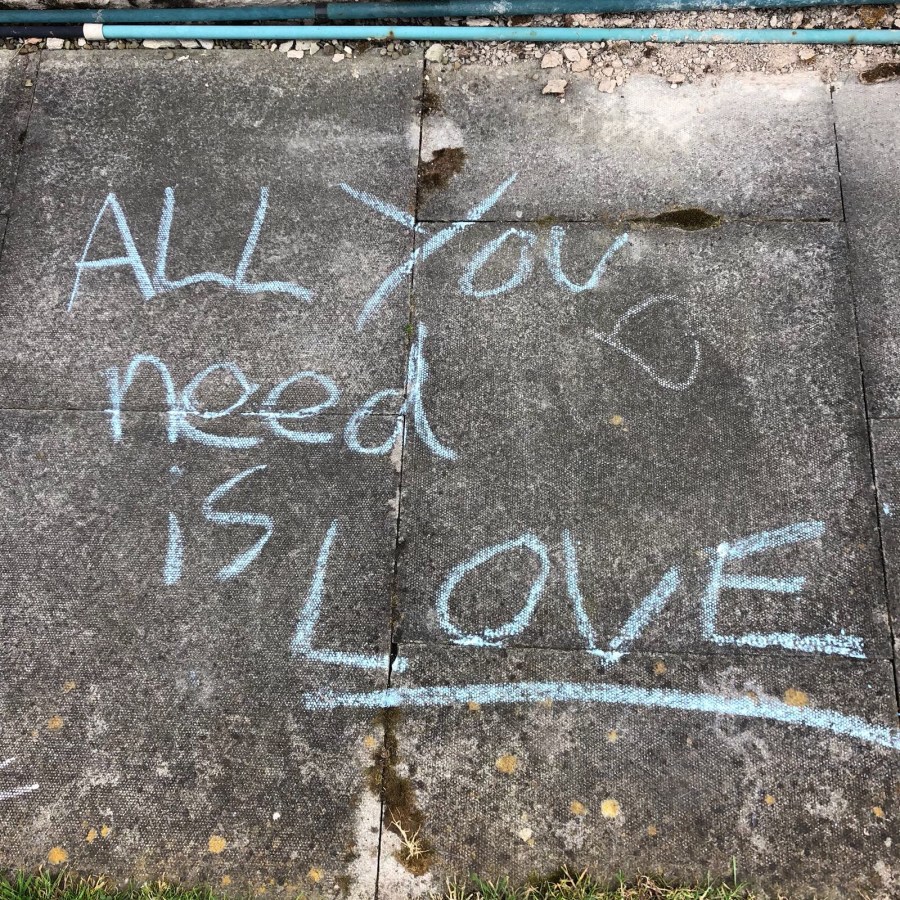 ALL You
need
is
LOVE